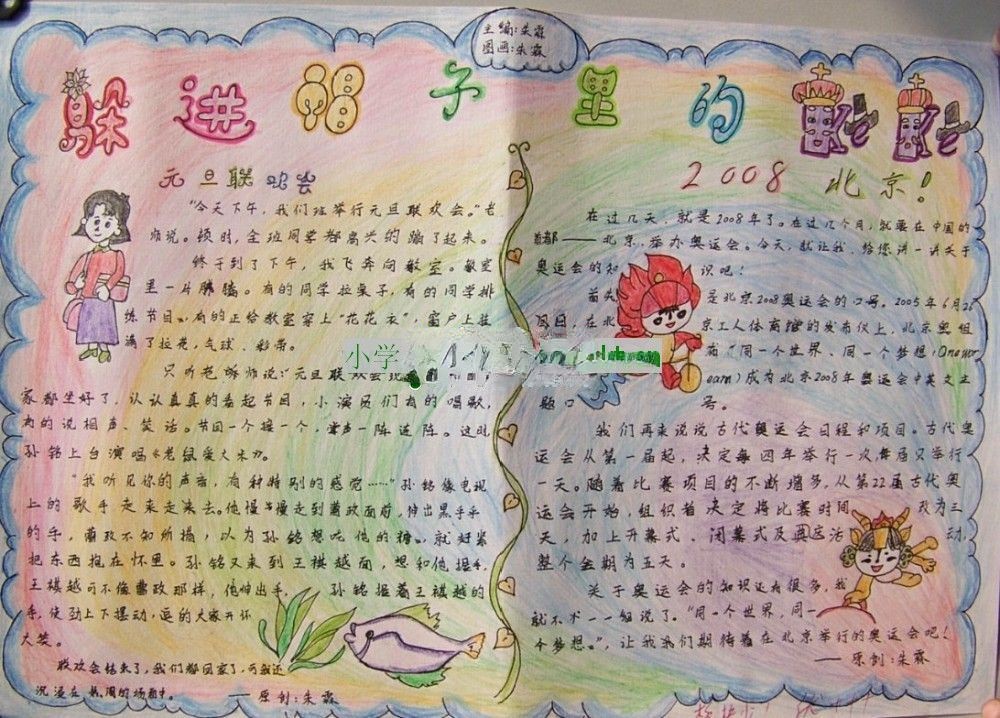 主编:朱霖
图画:朱霖
躲进帽子里的
元旦联欢会
“今天下午,我们班举行元旦联欢会。”老
师说。顿时,全班同学都高兴的蹦了起来。
终于到了下午,我飞奔向教室。教室
里一片沸腾。有的同学拉桌子,有的同学排
练节目,有的正给教室穿上“花花衣”,窗户上挂
满了拉花,气球、彩带。
只听老师说:“元旦联欢会
家都坐好了,认认真真的看起节目,小演员们有的唱歌,
有的说相声、笑话。节目一个接一个,掌声一阵连阵。这时
孙铭上台演唱《老鼠爱大米》。
“我听见你的声音,有种特别的感觉……”孙铭像电视
上的歌手走来走去。他慢慢走到曹政面前,伸出黑乎乎
的手,曹政不知所措,以为孙铭想吃他的糖,就赶紧
把东西抱在怀里。孙铭又来到王棋越面,想和他握手,
王棋越可不像曹政那样,他伸出手,孙铭握着王棋越的
手,使劲上下摆动,逗的大家开怀
大笑。
联欢会结束了,我们都回家了,可我还
沉浸在热闹的场面中。
——原创:朱霖
2008 北京!
在过几天,就是2008年了。在过几个月,就要在中国的
首都——北京,举办奥运会。今天,就让我,给您讲一讲关于
奥运会的知识吧!
首先 是北京2008奥运会的口号。2005年6月26
日,在北京工人体育馆的发布仪上,北京奥组
“同一个世界、同一个梦想(One wor
eam)成为北京2008年奥运会中英文主
题口号。
我们再来说说古代奥运会日程和项目。古代奥
运会从第一届起,决定每四年举行一次,每届又举行
一天。随着比赛项目的不断增多,从第22届古代奥
运会开始,组织者决定将比赛时间改为三
天,加上开幕式、闭幕式及活动,
整个会期为五天。
关于奥运会的知识还有很多,我
就不术一一细说了。“同一个世界,同一
个梦想。”,让我们期待着在北京举行的奥运会吧!
——原创:朱霖
小学